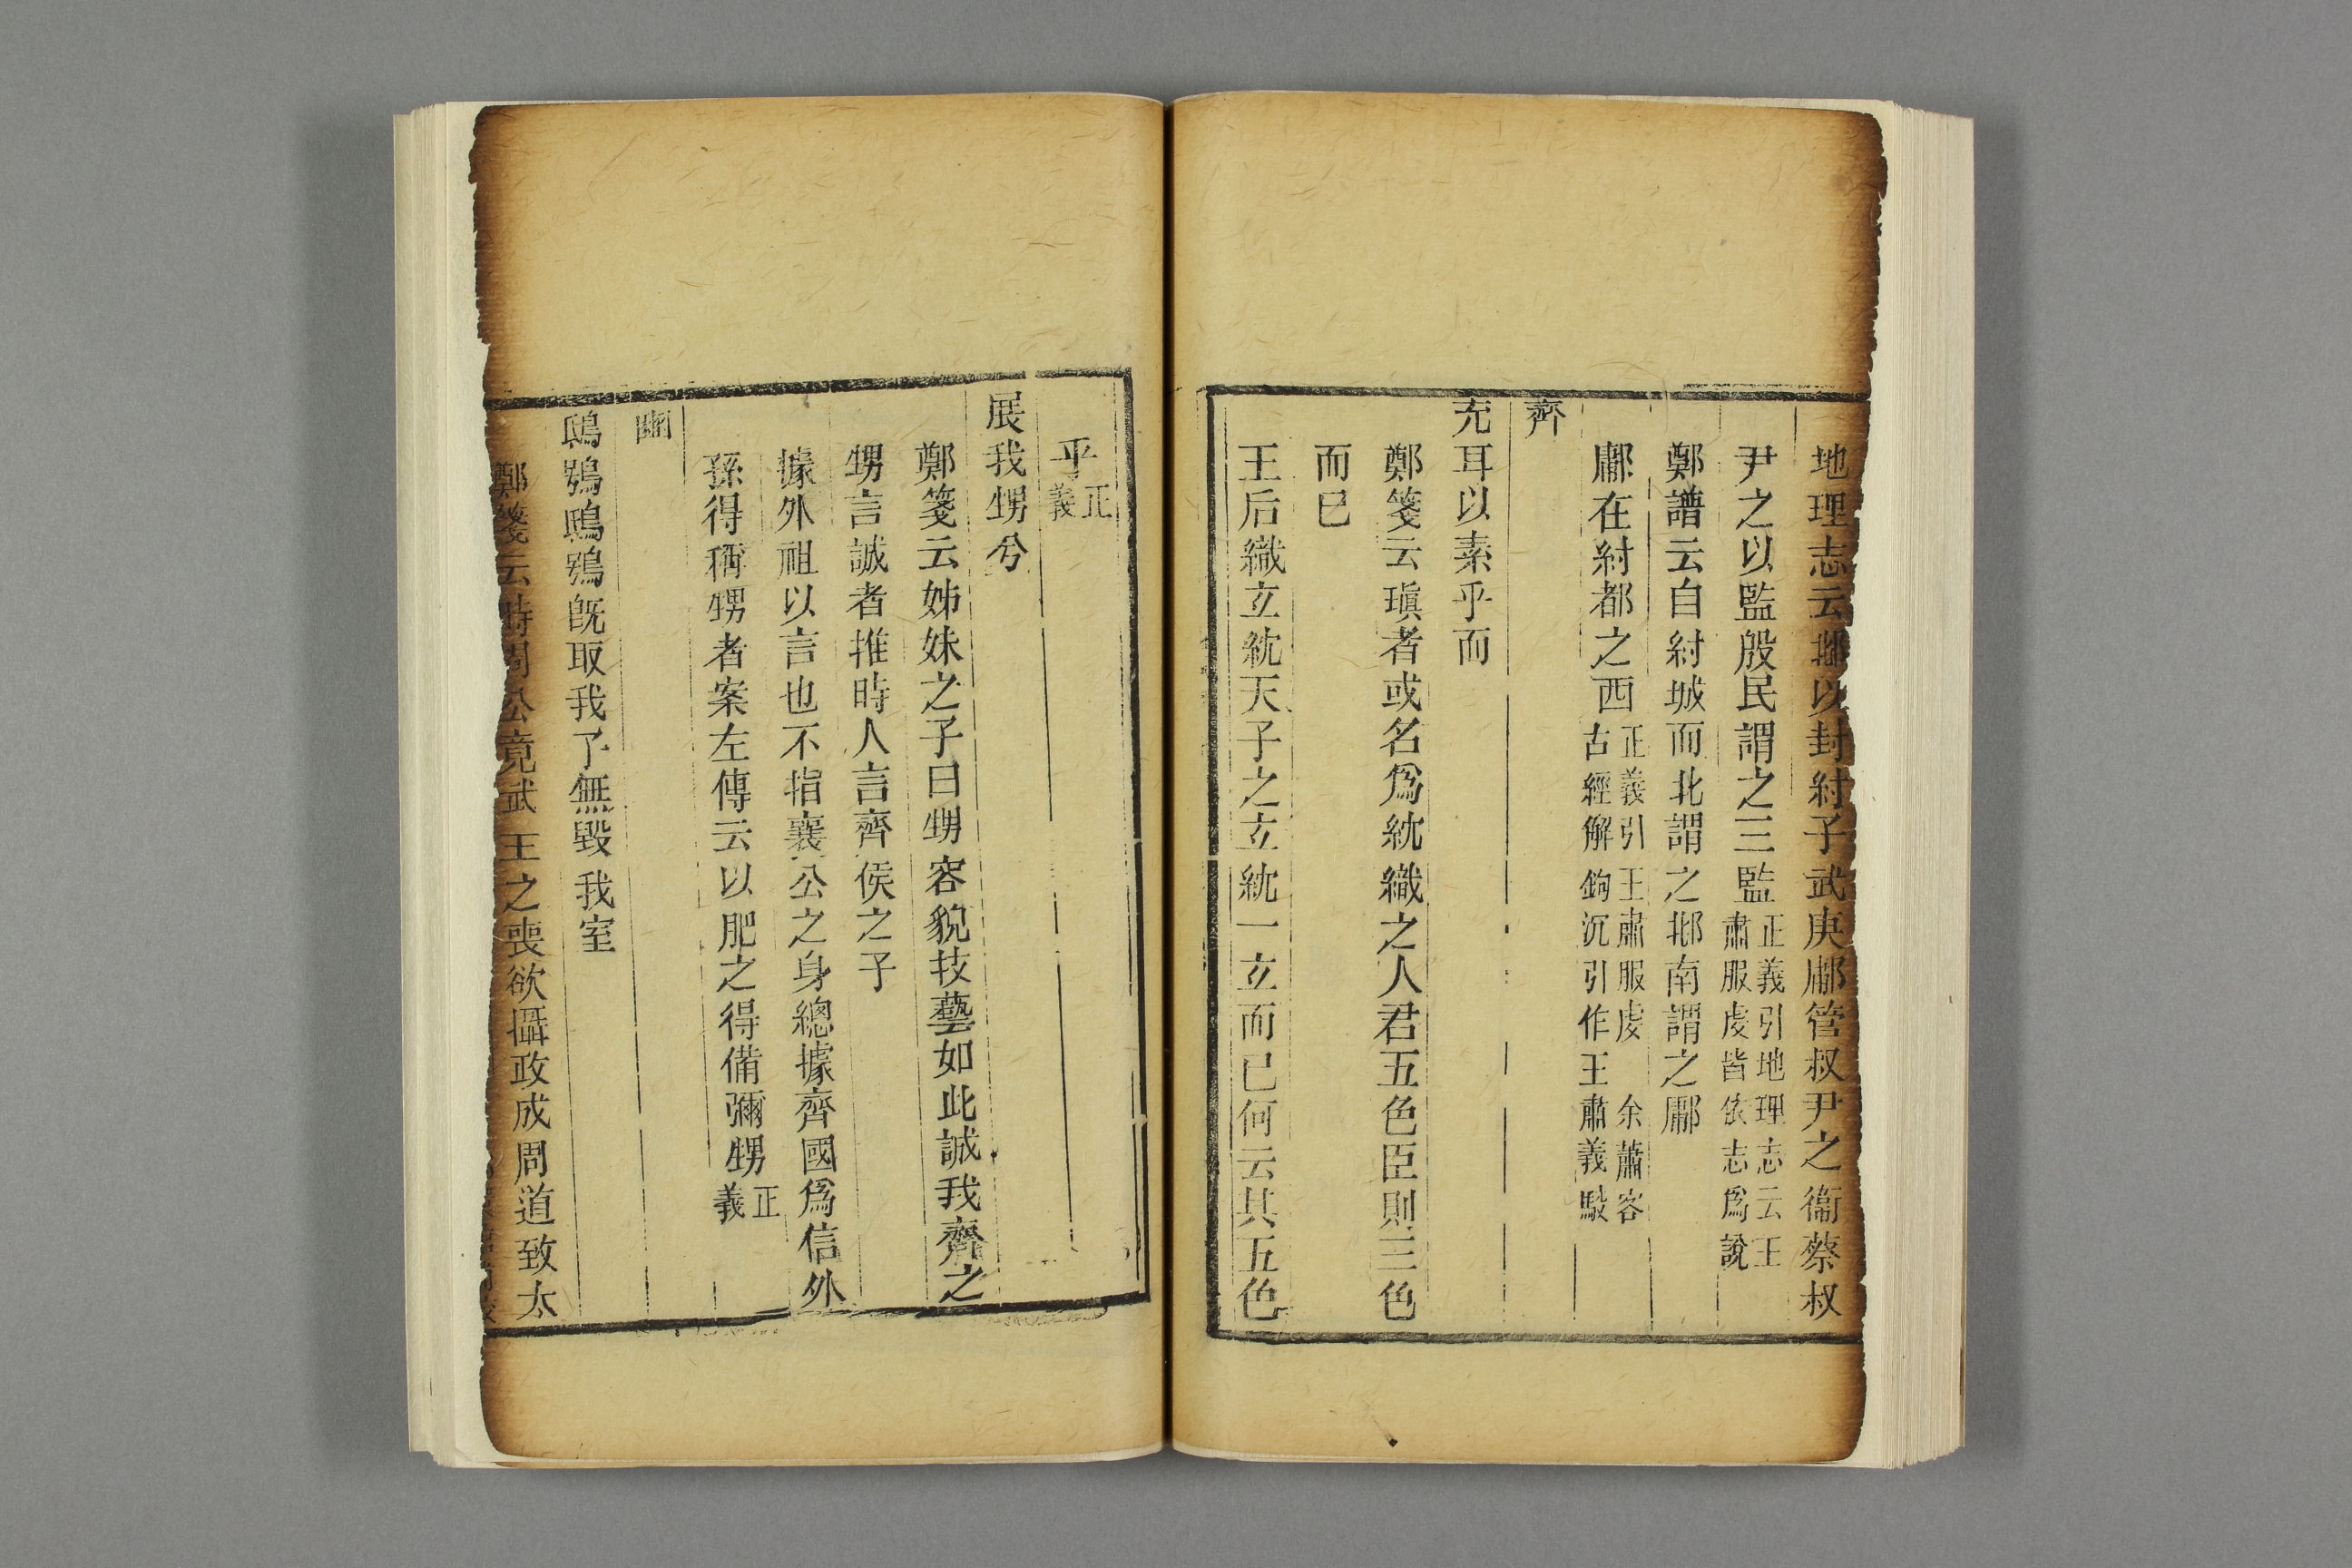 地理志云邶以封紂子武庚鄘管叔尹之衞蔡叔
尹之以監殷民謂之三監正義引地理志云王
肅服虔皆依志爲說
鄭譜云自紂城而北謂之邶南謂之鄘
鄘在紂都之西正義引王肅服虔 余蕭客
古經解鉤沉引作王肅義駁
齊
充耳以素乎而
鄭箋云瑱者或名爲紞織之人君五色臣則三色
而已
王后織立紞天子之立紞一立而已何云其五色
乎正
義
展我甥兮
鄭箋云姊妹之子曰甥容貌技藝如此誠我齊之
甥言誠者推時人言齊侯之子
據外祖以言也不指襄公之身總據齊國爲信外
孫得稱甥者案左傳云以肥之得備彌甥正
義
豳
鴟鴞鴟鴞旣取我子無毀我室
鄭箋云時周公竟武王之喪欲攝政成周道致太